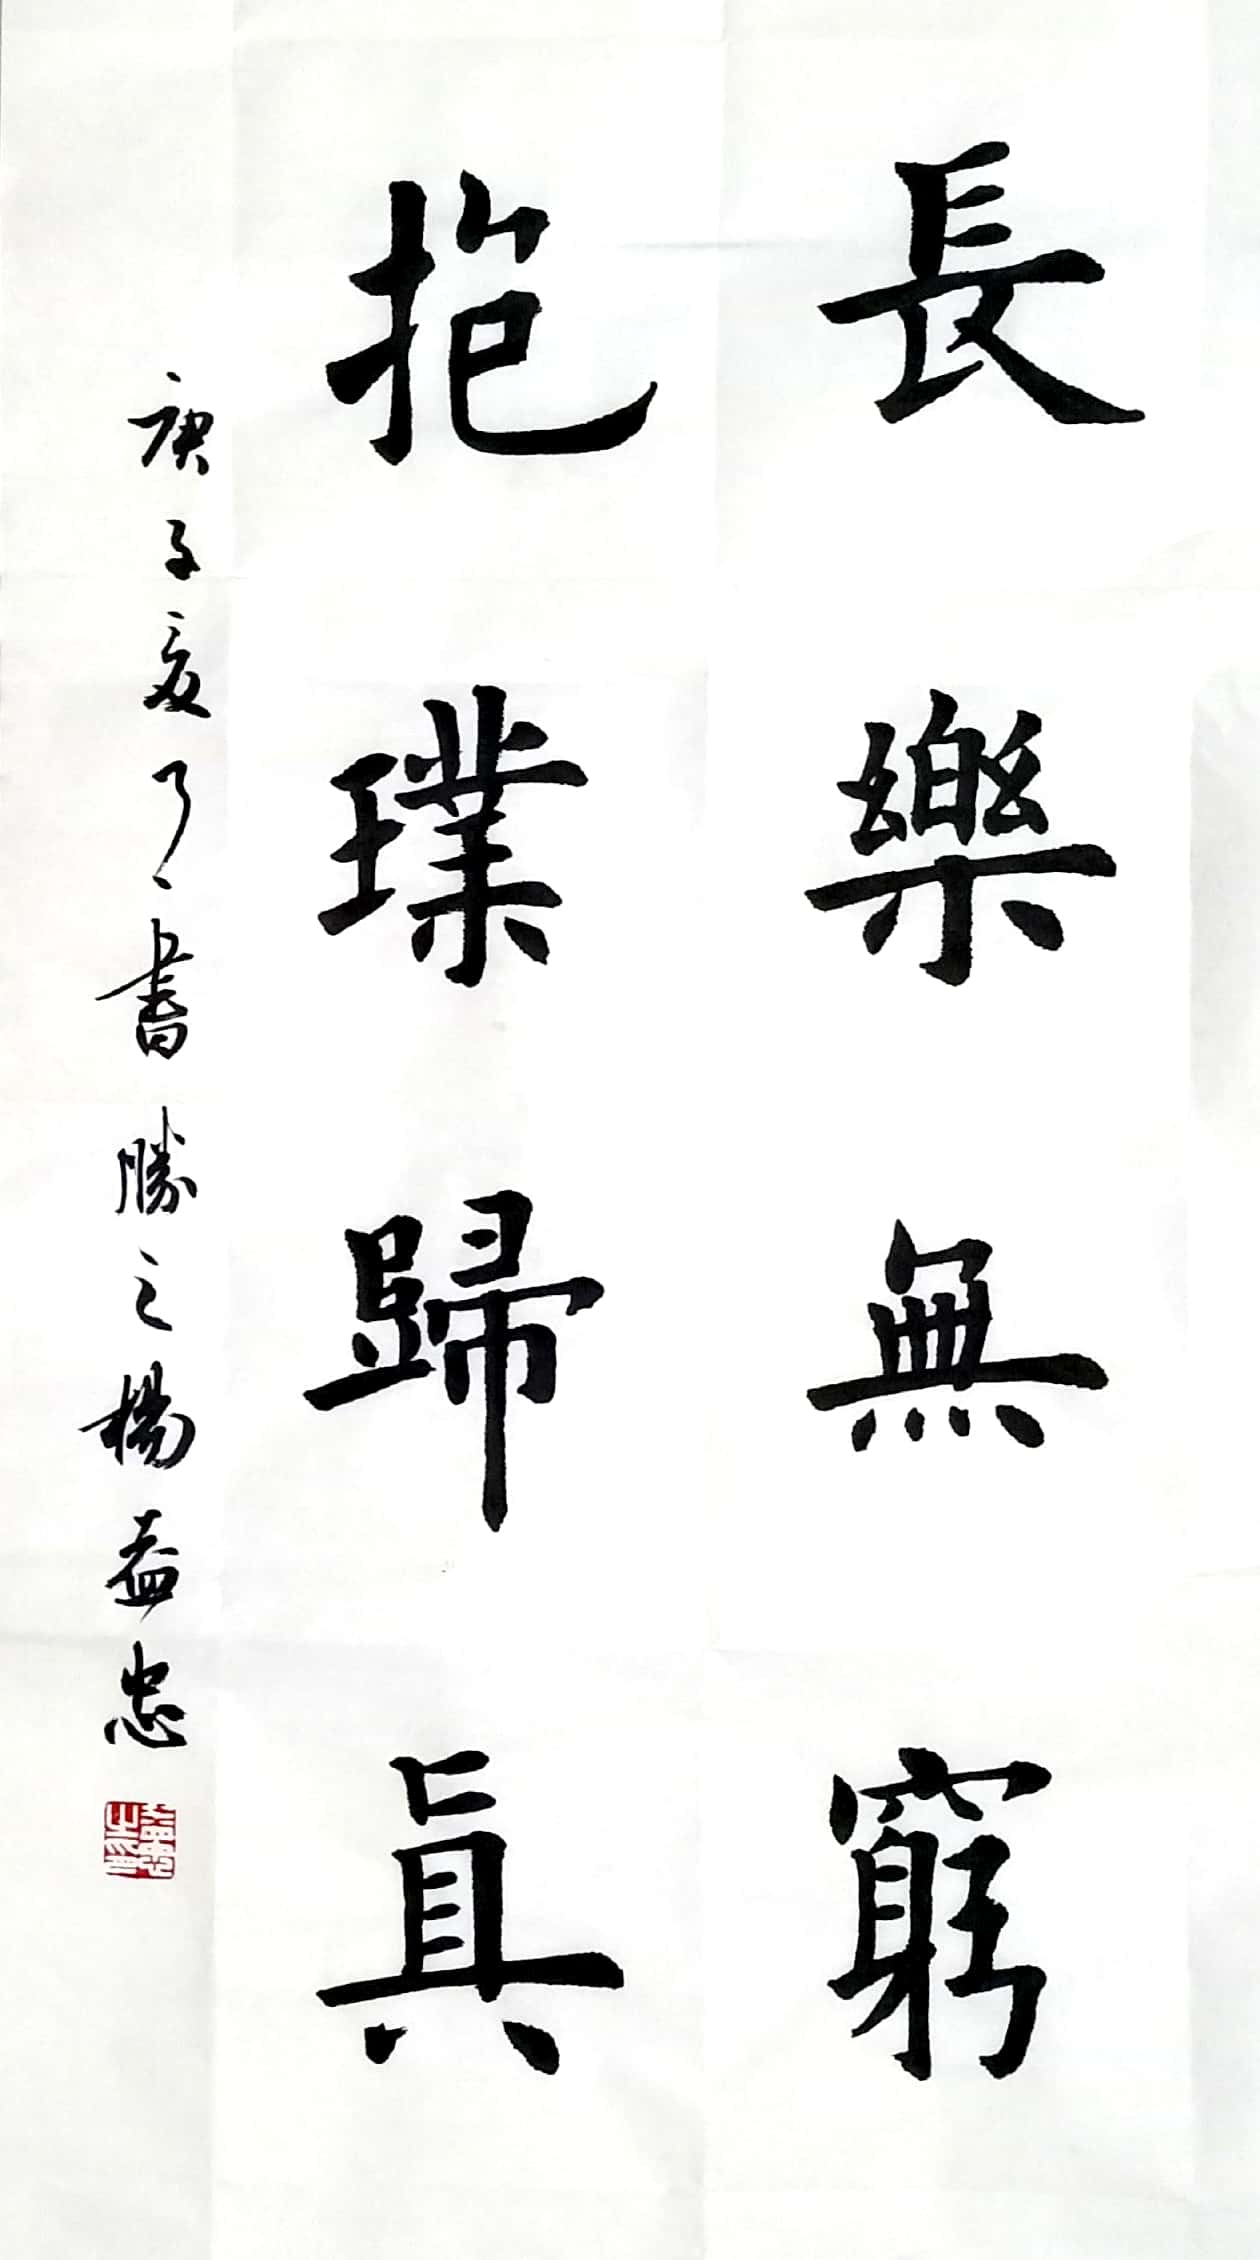 長樂無窮
抱璞歸真
庚子夏月書勝之楊益忠